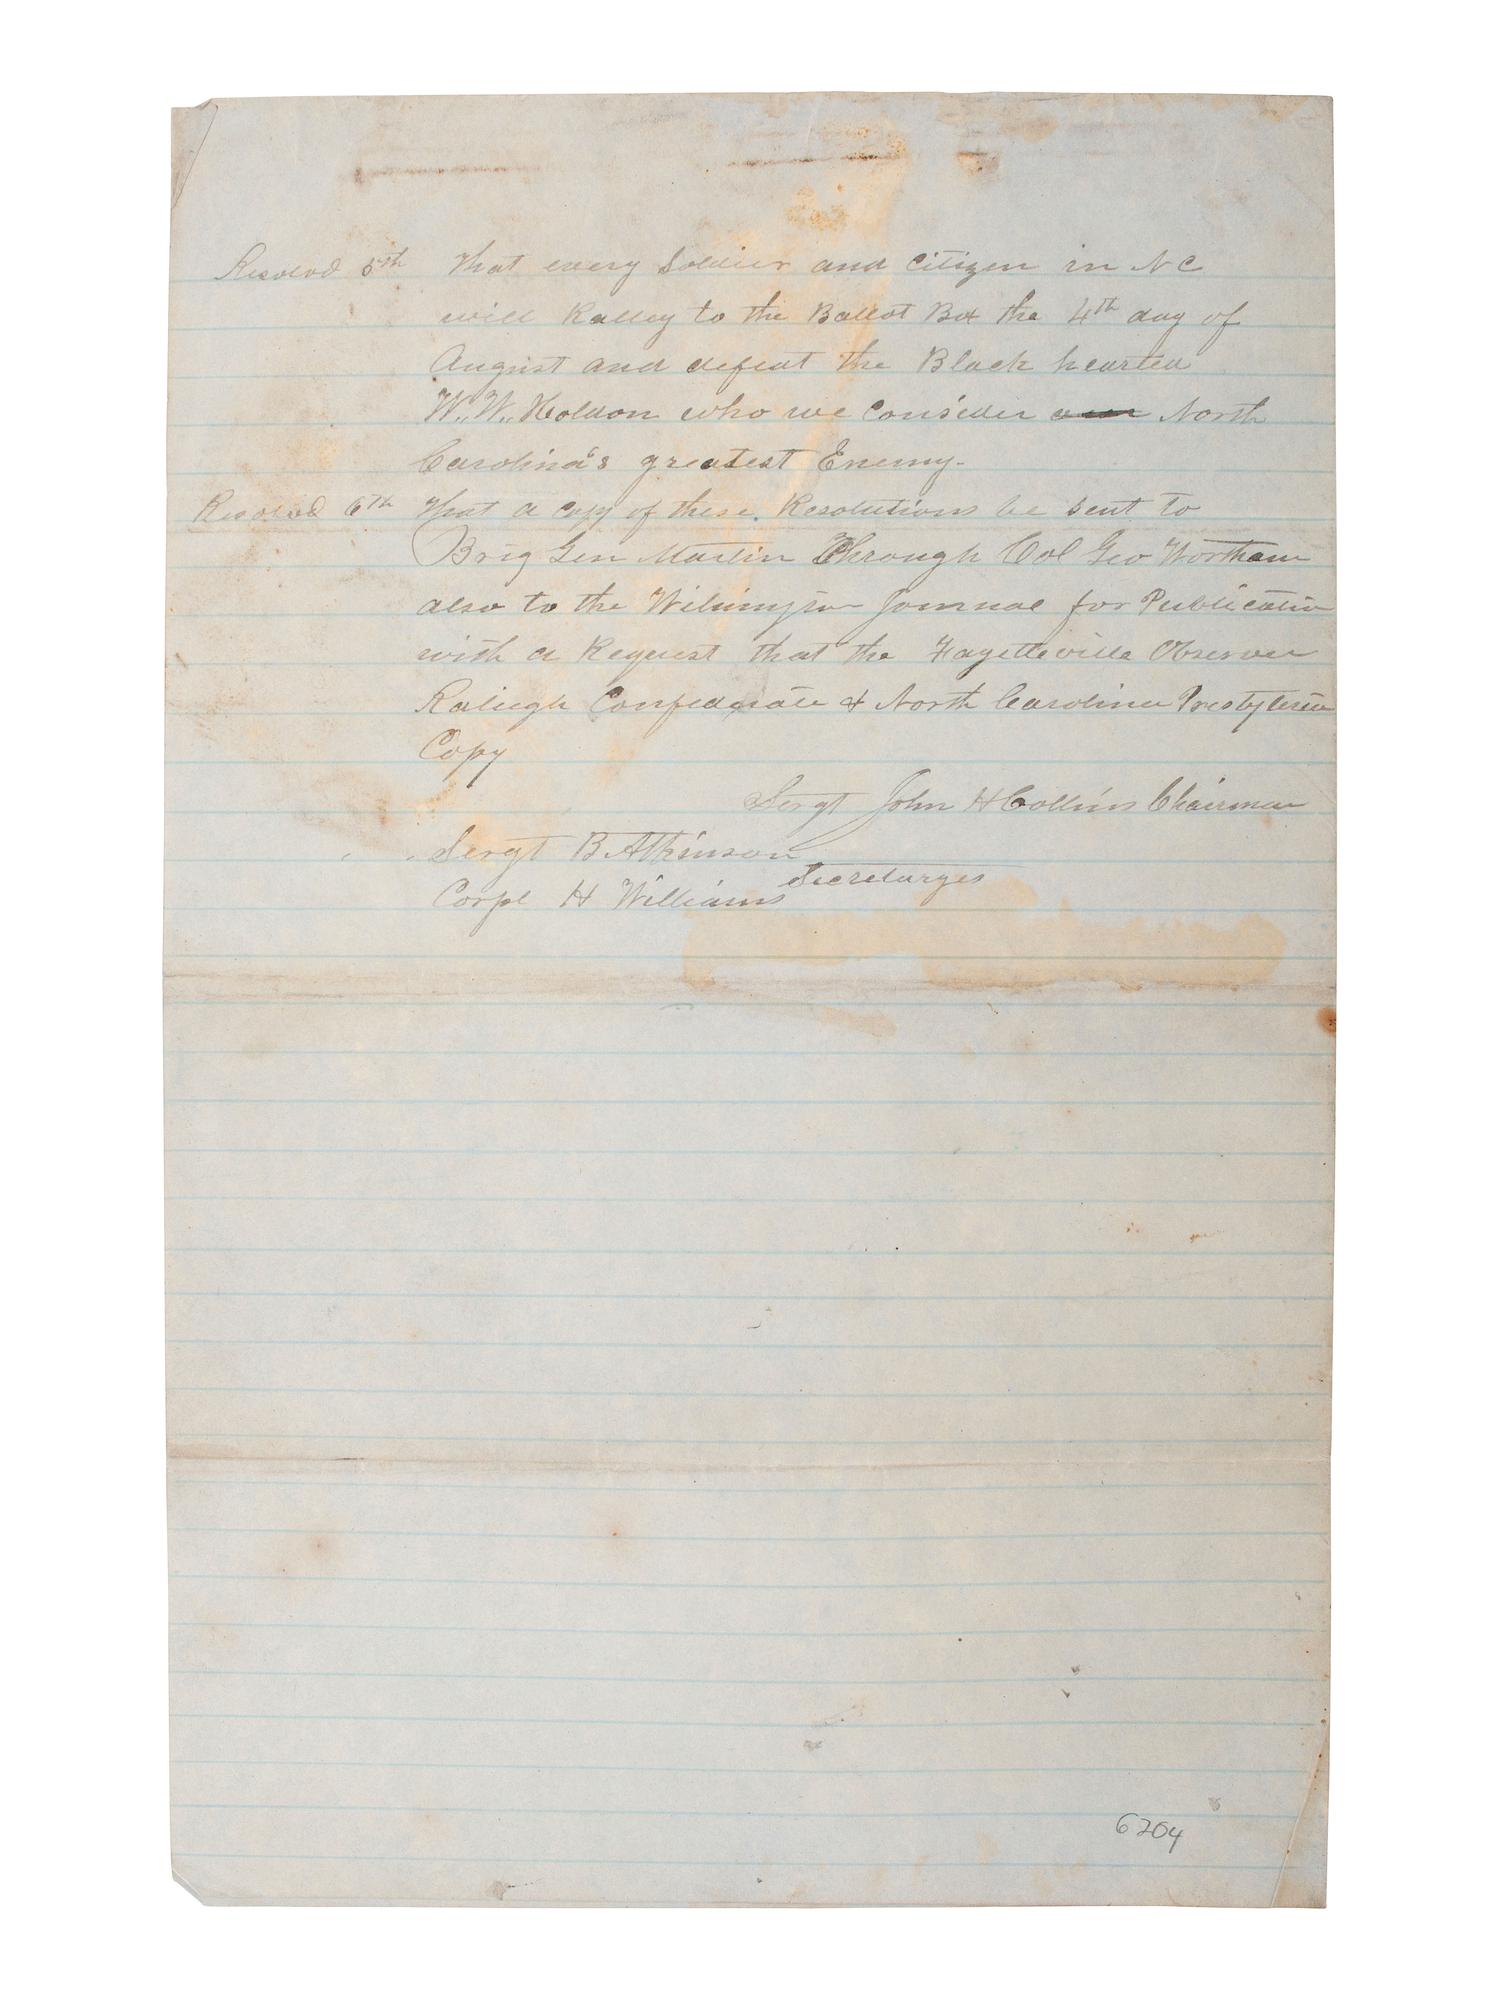 Resolved 5th That every Soldier and Citizen in N C
will Ralley to the Ballot Box the 4th day of
August and defeat the Black hearted
W.,W.,Holdon who we Consider North
Carolina's greatest Enemy.
Resolved 6th That a Copy of these. Resolutions be sent to
Brig Gen Martin Through Col Geo Wortham
also to the Wilmington Journal for Publication
with a Request that the Fayetteville Observer
Raliegh Confederate & North Carolina Presbyterian
Copy
Sergt John H Collins Chairman
Sergt B Atkinson
Secretaryes
Corpl H Williams
6204